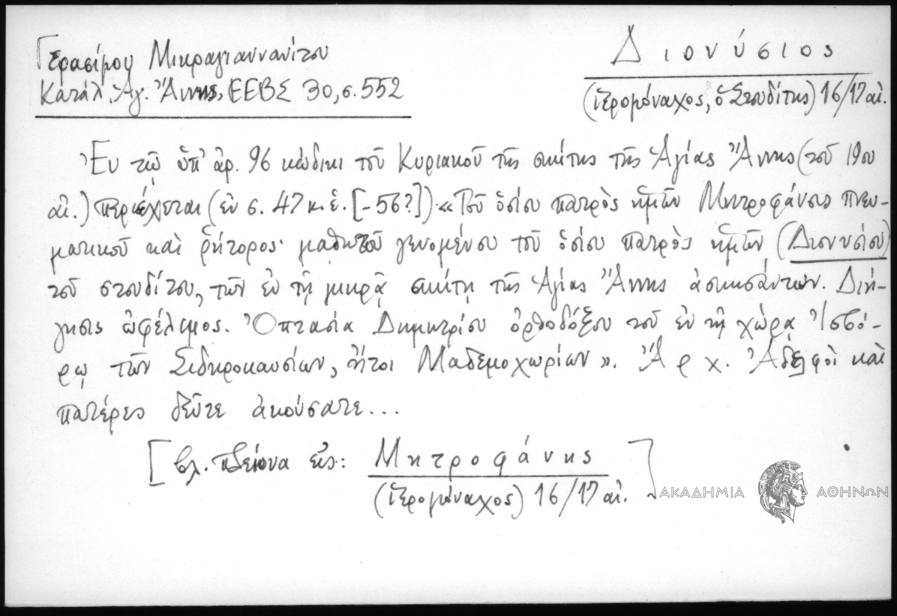 Γερασίμου Μικραγιαννανίτου
Κατάλ. Ἁγ. Ἄννης, ΕΕΒΣ 30, σ. 552
Διονύσιος
(ἱερομόναχος, ὁ Στουδίτης) 16/17 αἰ.
Ἐν τῷ ὑπ' ἀρ. 96 κώδικι τοῦ Κυριακοῦ τῆς σκήτης τῆς Ἁγίας Ἄννης (τοῦ 19ου
αἰ.) περιέχεται (ἐν σ. 47 κ. ἑ. [-56?]) «Τοῦ ὁσίου πατρὸς ἡμῶν Μητροφάνους πνευ-
ματικοῦ καὶ ῥήτορος· μαθητοῦ γενομένου τοῦ ὁσίου πατρὸς ἡμῶν (Διονυσίου)
τοῦ στουδίτου, τῶν ἐν τῇ μικρᾷ σκήτῃ τῆς Ἁγίας Ἄννης ἀσκησάντων. Διή-
γησις ὠφέλιμος. Ὀπτασία Δημητρίου ὀρθοδόξου τοῦ ἐν τῇ χώρᾳ Ἰσβό-
ρῳ τῶν Σιδηροκαυσίων, ἤτοι Μαδεμοχωρίων». Ἀρχ. Ἀδελφοὶ καὶ
πατέρες δεῦτε ἀκούσατε...
[βλ. πλείονα εἰς: Μητροφάνης
(ἱερομόναχος) 16/17 αἰ.]
ΑΚΑΔΗΜΙΑ ΑΘΗΝΩΝ